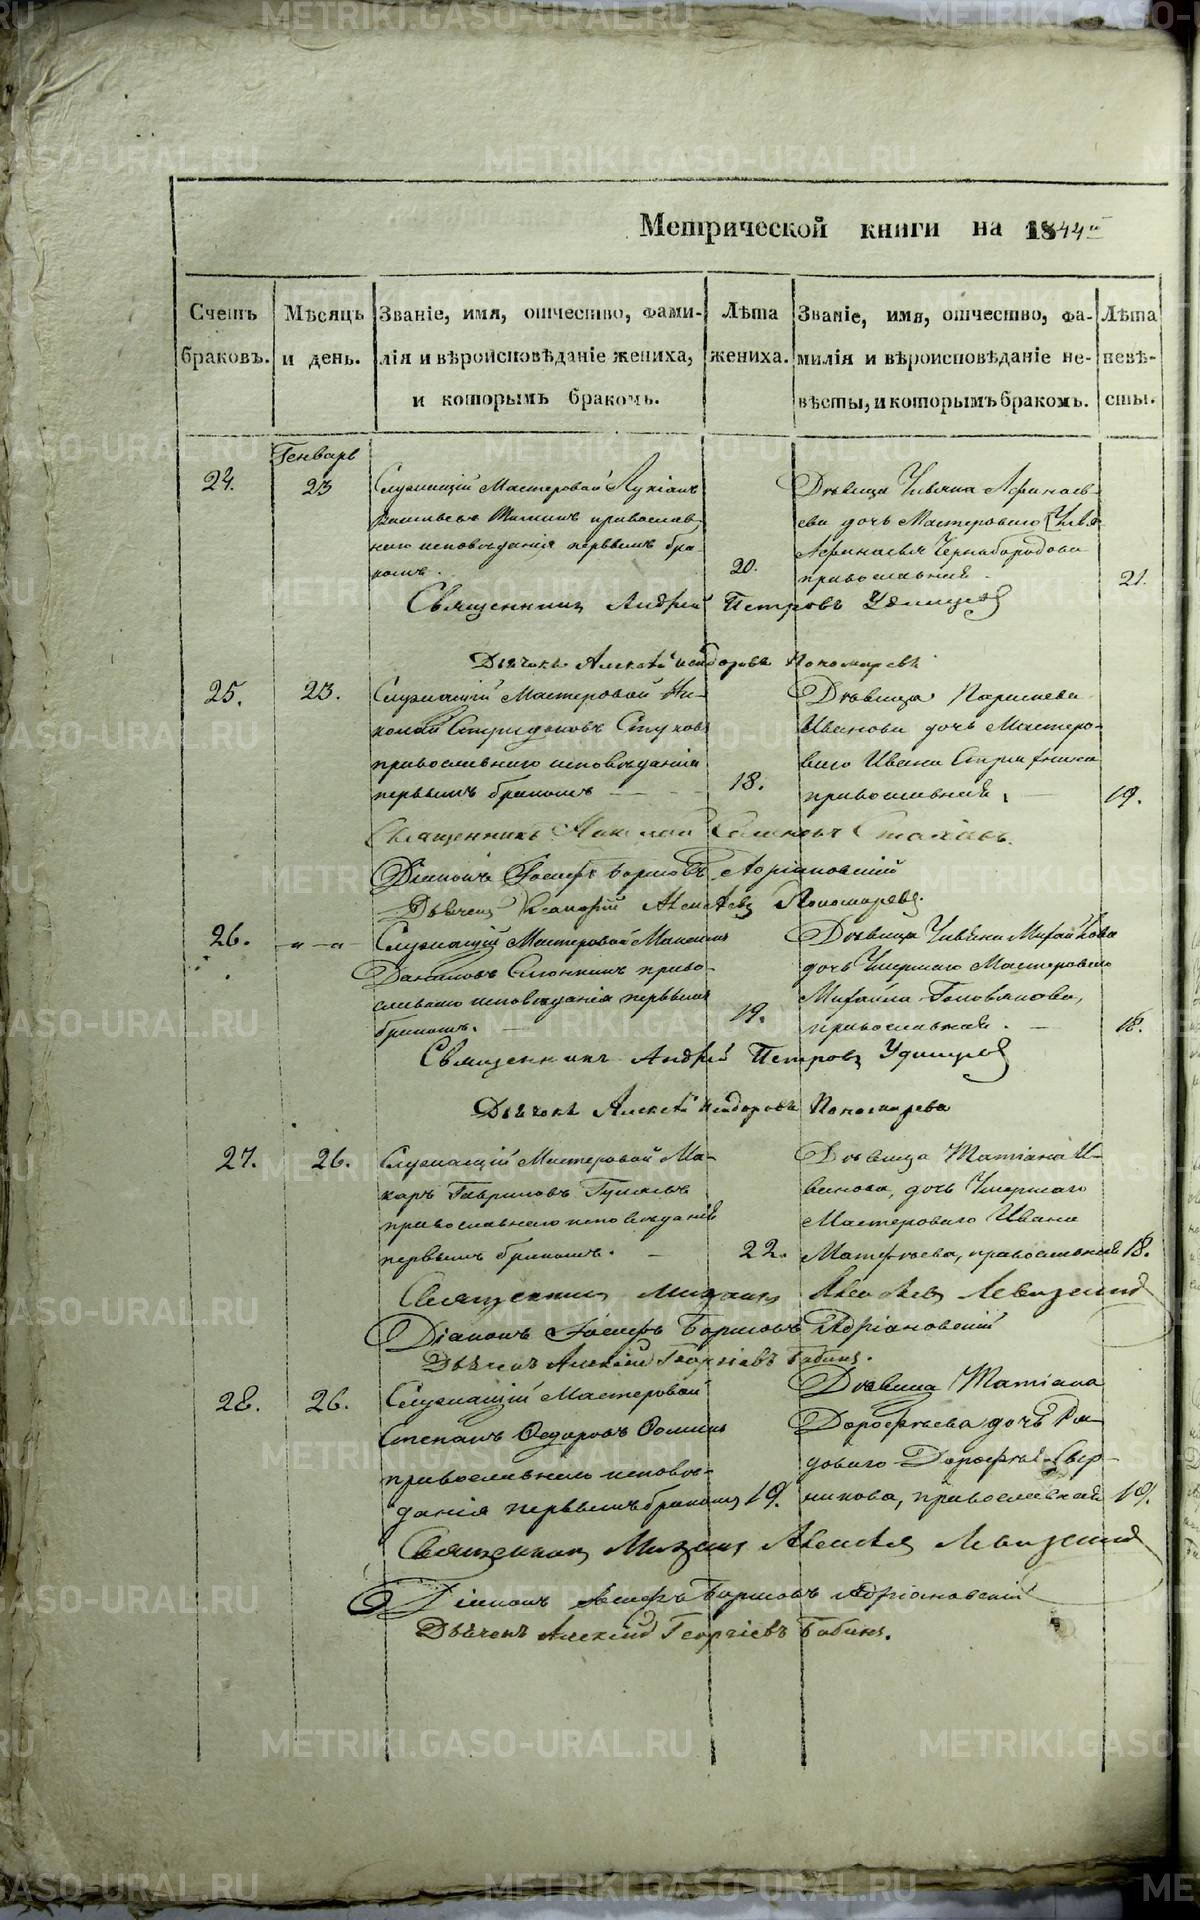 Метрической книги на 1844й
Счетъ браковъ.
Мѣсяцъ и день.
Званіе, имя, отчество, фами-
лія и вѣроисповѣданіе жениха,
и которымъ бракомъ.
Лѣта жениха.
Званіе, имя, отчество, фа-
милія и вѣроисповѣданіе не-
вѣсты, и которымъ бракомъ.
Лѣта невѣ-
сты.
Генварь
24.
23
Служащій Мастеровой Лукіанъ
православ-
наго исповѣданія первымъ бра-
комъ.
20.
Дѣвица Афанась-
ева дочь Мастероваго
Афанасья Чернобородова
православная.
21.
Священникъ Андрей Петровъ Удинцов
Дьячокъ Алексѣй Исидоровъ Пономаревъ
25.
23.
Служащій Мастеровой Ни-
колай Спиридоновъ Стуковъ
православнаго исповѣданія
первымъ бракомъ
18.
Дѣвица
Иванова дочь Мастеро-
ваго Ивана
православная,
19.
Священникъ
Діаконъ Іосифъ Борисовъ Адріановскій
Дьячекъ Алексѣевъ Пономаревъ.
26.
Служащій Мастеровой Максимъ
Даниловъ право-
славнаго исповѣданія первымъ
бракомъ.
19.
Дѣвица Михайлова
дочь Умершаго Мастероваго
Михайла Голованова,
православная.
18.
Священникъ Андрей Петровъ Удинцов
Дьячокъ Алексѣй Исидоровъ Пономаревъ
27.
26.
Служащій Мастеровой Ма-
каръ Гавриловъ
православнаго исповѣданія
первымъ бракомъ.
22.
Дѣвица Татіана И-
ванова, дочь Умершаго
Мастероваго Ивана
Матфѣева, православная
18.
Священникъ Михаилъ Алексѣевъ Левицкій
Діаконъ Іосифъ Борисовъ Адріановскій
Дьячекъ Алексѣй Георгіевъ Бабинъ.
28.
26.
Служащій Мастеровой
Степанъ Ѳедоровъ Ѳоминъ
православнаго исповѣ-
данія первымъ бракомъ
19.
Дѣвица Татіана
Дорофѣева дочь Ря-
доваго Дорофѣя
православная
19.
Священникъ Михаилъ Алексѣевъ Левицкій
Діаконъ Іосифъ Борисовъ Адріановскій
Дьячекъ Алексѣй Георгіевъ Бабинъ.
METRIKI.GASO-URAL.RU